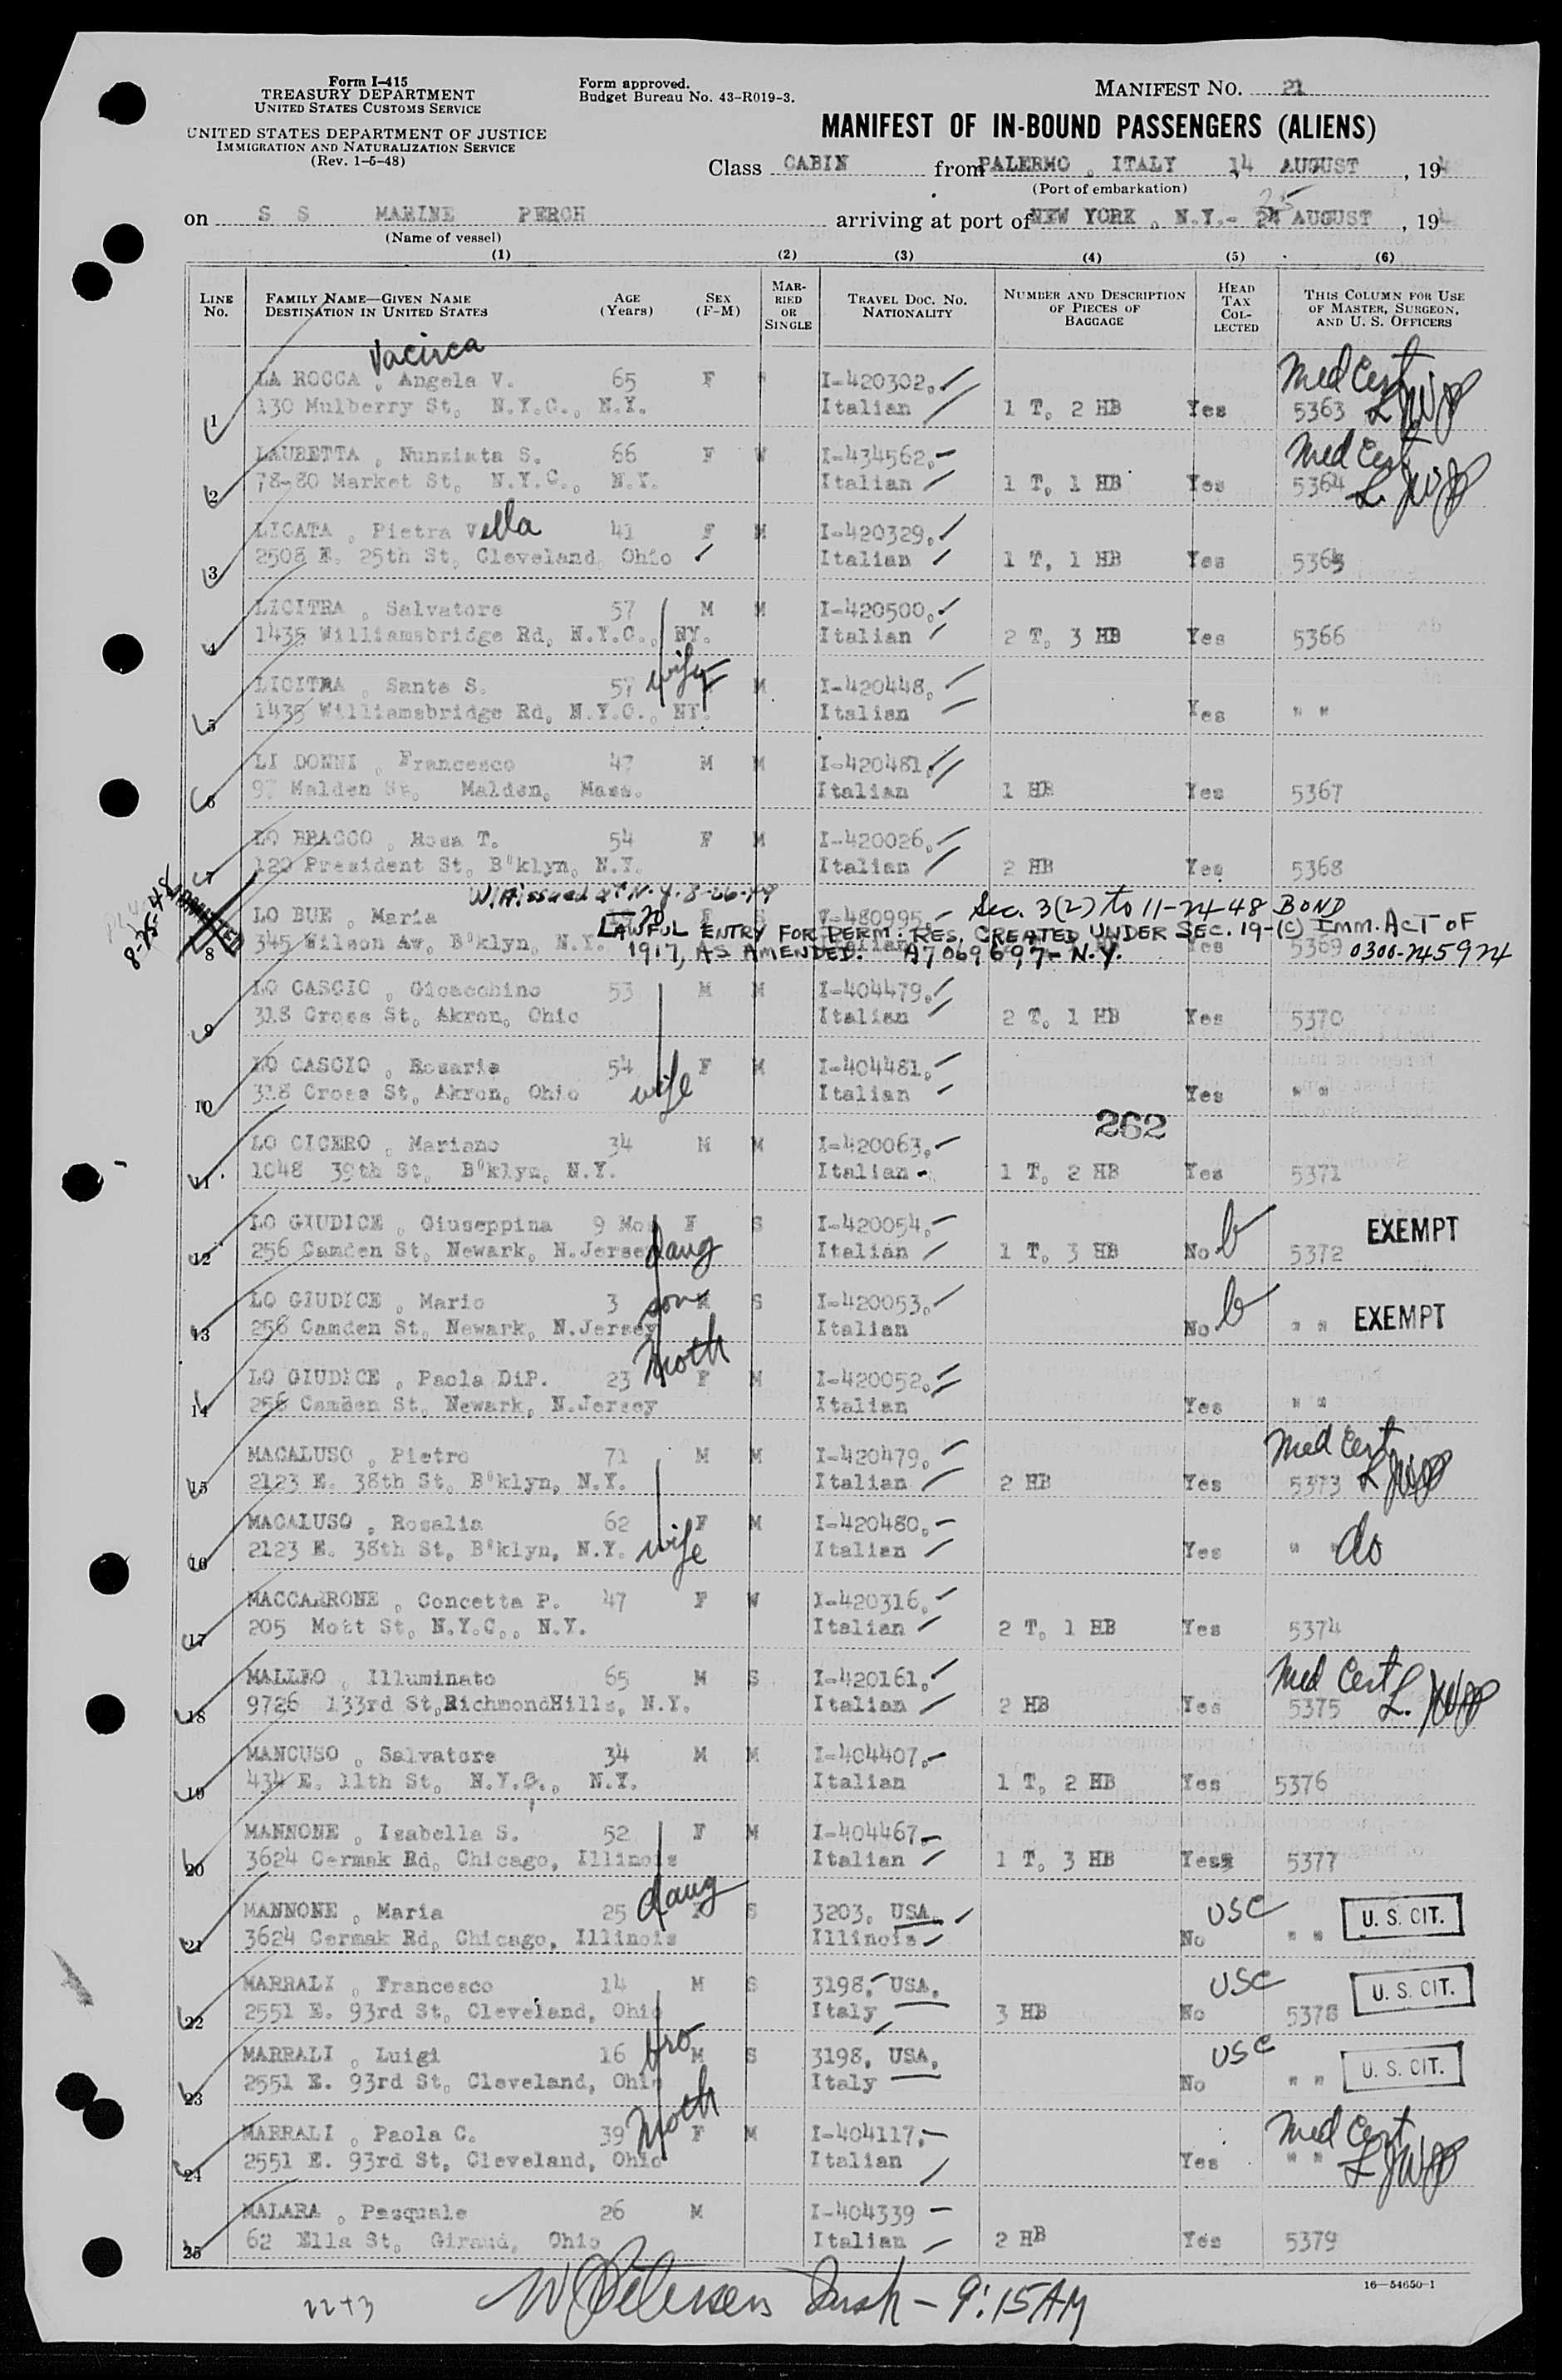 Form I-415
TREASURY DEPARTMENT
UNITED STATES CUSTOMS SERVICE
UNITED STATES DEPARTMENT OF JUSTICE
IMMIGRATION AND NATURALIZATION SERVICE
(Rev. 1-5-48)
Form approved.
Budget Bureau No. 43-R019-3.
MANIFEST NO. 21
MANIFEST OF IN-BOUND PASSENGERS (ALIENS)
Class CABIN from PALERMO, ITALY 14 AUGUST, 194
(Port of embarkation)
25
on S S MARINE PERCH arriving at port of NEW YORK, N.Y.- 24 AUGUST, 194
(Name of vessel)
(1) (2) (3) (4) (5) (6)
LINE No. FAMILY NAME—GIVEN NAME DESTINATION IN UNITED STATES AGE (Years) SEX (F-M) MARRIED OR SINGLE TRAVEL DOC. NO. NATIONALITY NUMBER AND DESCRIPTION OF PIECES OF BAGGAGE HEAD TAX COLLECTED THIS COLUMN FOR USE OF MASTER, SURGEON, AND U. S. OFFICERS
Vacirca
LA ROCCA, Angela V. 65 F I-420302. Med Cert
1 130 Mulberry St. N.Y.C., N.Y. Italian 1 T, 2 HB Yes 5363
LAURETTA, Nunziata S. 66 F W I-434562. Med Cert
2 78-80 Market St. N.Y.C., N.Y. Italian 1 T, 1 HB Yes 5364
LICATA, Pietra Vella 41 F M I-420329.
3 2508 E. 25th St. Cleveland, Ohio Italian 1 T, 1 HB Yes 5365
LICITRA, Salvatore 57 M M I-420500.
4 1435 Williamsbridge Rd, N.Y.C., NY. Italian 2 T, 3 HB Yes 5366
LICITRA, Santa S. 57 wife F M I-420448.
5 1435 Williamsbridge Rd, N.Y.C., NY. Italian Yes " "
LI DONNI, Francesco 47 M M I-420481.
6 97 Malden St. Malden, Mass. Italian 1 HB Yes 5367
LO BRACCO, Rosa T. 54 F M I-420026.
7 120 President St, B'klyn, N.Y. Italian 2 HB Yes 5368
8-25-48 ADMITTED
W/A issued at N.Y. 8-26-49
LO BUE, Maria 20 F S V-480995. Sec. 3(2) to 11-24-48 BOND
LAWFUL ENTRY FOR PERM. RES. CREATED UNDER SEC. 19-(c) IMM. ACT OF
8 345 Wilson Av, B'klyn, N.Y. Italian Yes 5369
1917, AS AMENDED. A7069697- N.Y. 0300-245924
LO CASCIO, Gioacchino 53 M M I-404479.
9 318 Cross St, Akron, Ohio Italian 2 T, 1 HB Yes 5370
LO CASCIO, Rosaria 54 wife F M I-404481.
10 318 Cross St, Akron, Ohio Italian Yes " "
262
LO CICERO, Mariano 34 M M I-420063.
11 1048 39th St, B'klyn, N.Y. Italian 1 T, 2 HB Yes 5371
LO GIUDICE, Giuseppina 9 Mo F S I-420054. EXEMPT
12 256 Camden St, Newark, N.Jersey daug Italian 1 T, 3 HB No b 5372
LO GIUDICE, Mario 3 son M S I-420053. EXEMPT
13 256 Camden St, Newark, N.Jersey Italian No b " "
LO GIUDICE, Paola DiP. 23 moth F M I-420052.
14 256 Camden St, Newark, N.Jersey Italian Yes " "
MACALUSO, Pietro 71 M M I-420479. Med Cert
15 2123 E. 38th St, B'klyn, N.Y. Italian 2 HB Yes 5373
MACALUSO, Rosalia 62 F M I-420480.
16 2123 E. 38th St, B'klyn, N.Y. wife Italian Yes " " do
MACCARRONE, Concetta P. 47 F W I-420316.
17 205 Mott St, N.Y.C., N.Y. Italian 2 T, 1 HB Yes 5374
MALLEO, Illuminato 65 M S I-420161. Med Cert
18 9726 133rd St,RichmondHills, N.Y. Italian 2 HB Yes 5375
MANCUSO, Salvatore 34 M M I-404407.
19 434 E. 11th St, N.Y.C., N.Y. Italian 1 T, 2 HB Yes 5376
MANNONE, Isabella S. 52 F M I-404467
20 3624 Cermak Rd, Chicago, Illinois Italian 1 T, 3 HB Yes 5377
MANNONE, Maria 25 daug F S 3203, USA. USC U. S. CIT.
21 3624 Cermak Rd, Chicago, Illinois Illinois No " "
MARRALI, Francesco 14 M S 3198, USA. USC U. S. CIT.
22 2551 E. 93rd St, Cleveland, Ohio Italy 3 HB No 5378
MARRALI, Luigi 16 bro M S 3198, USA. USC U. S. CIT.
23 2551 E. 93rd St, Cleveland, Ohio Italy No " "
MARRALI, Paola C. 39 moth F M I-404117. Med Cert
24 2551 E. 93rd St, Cleveland, Ohio Italian Yes " "
MALARA, Pasquale 26 M I-404339
25 62 Ella St, Giraud, Ohio Italian 2 HB Yes 5379
16—54650-1
22+3
W Petersen Insh - 9:15 AM